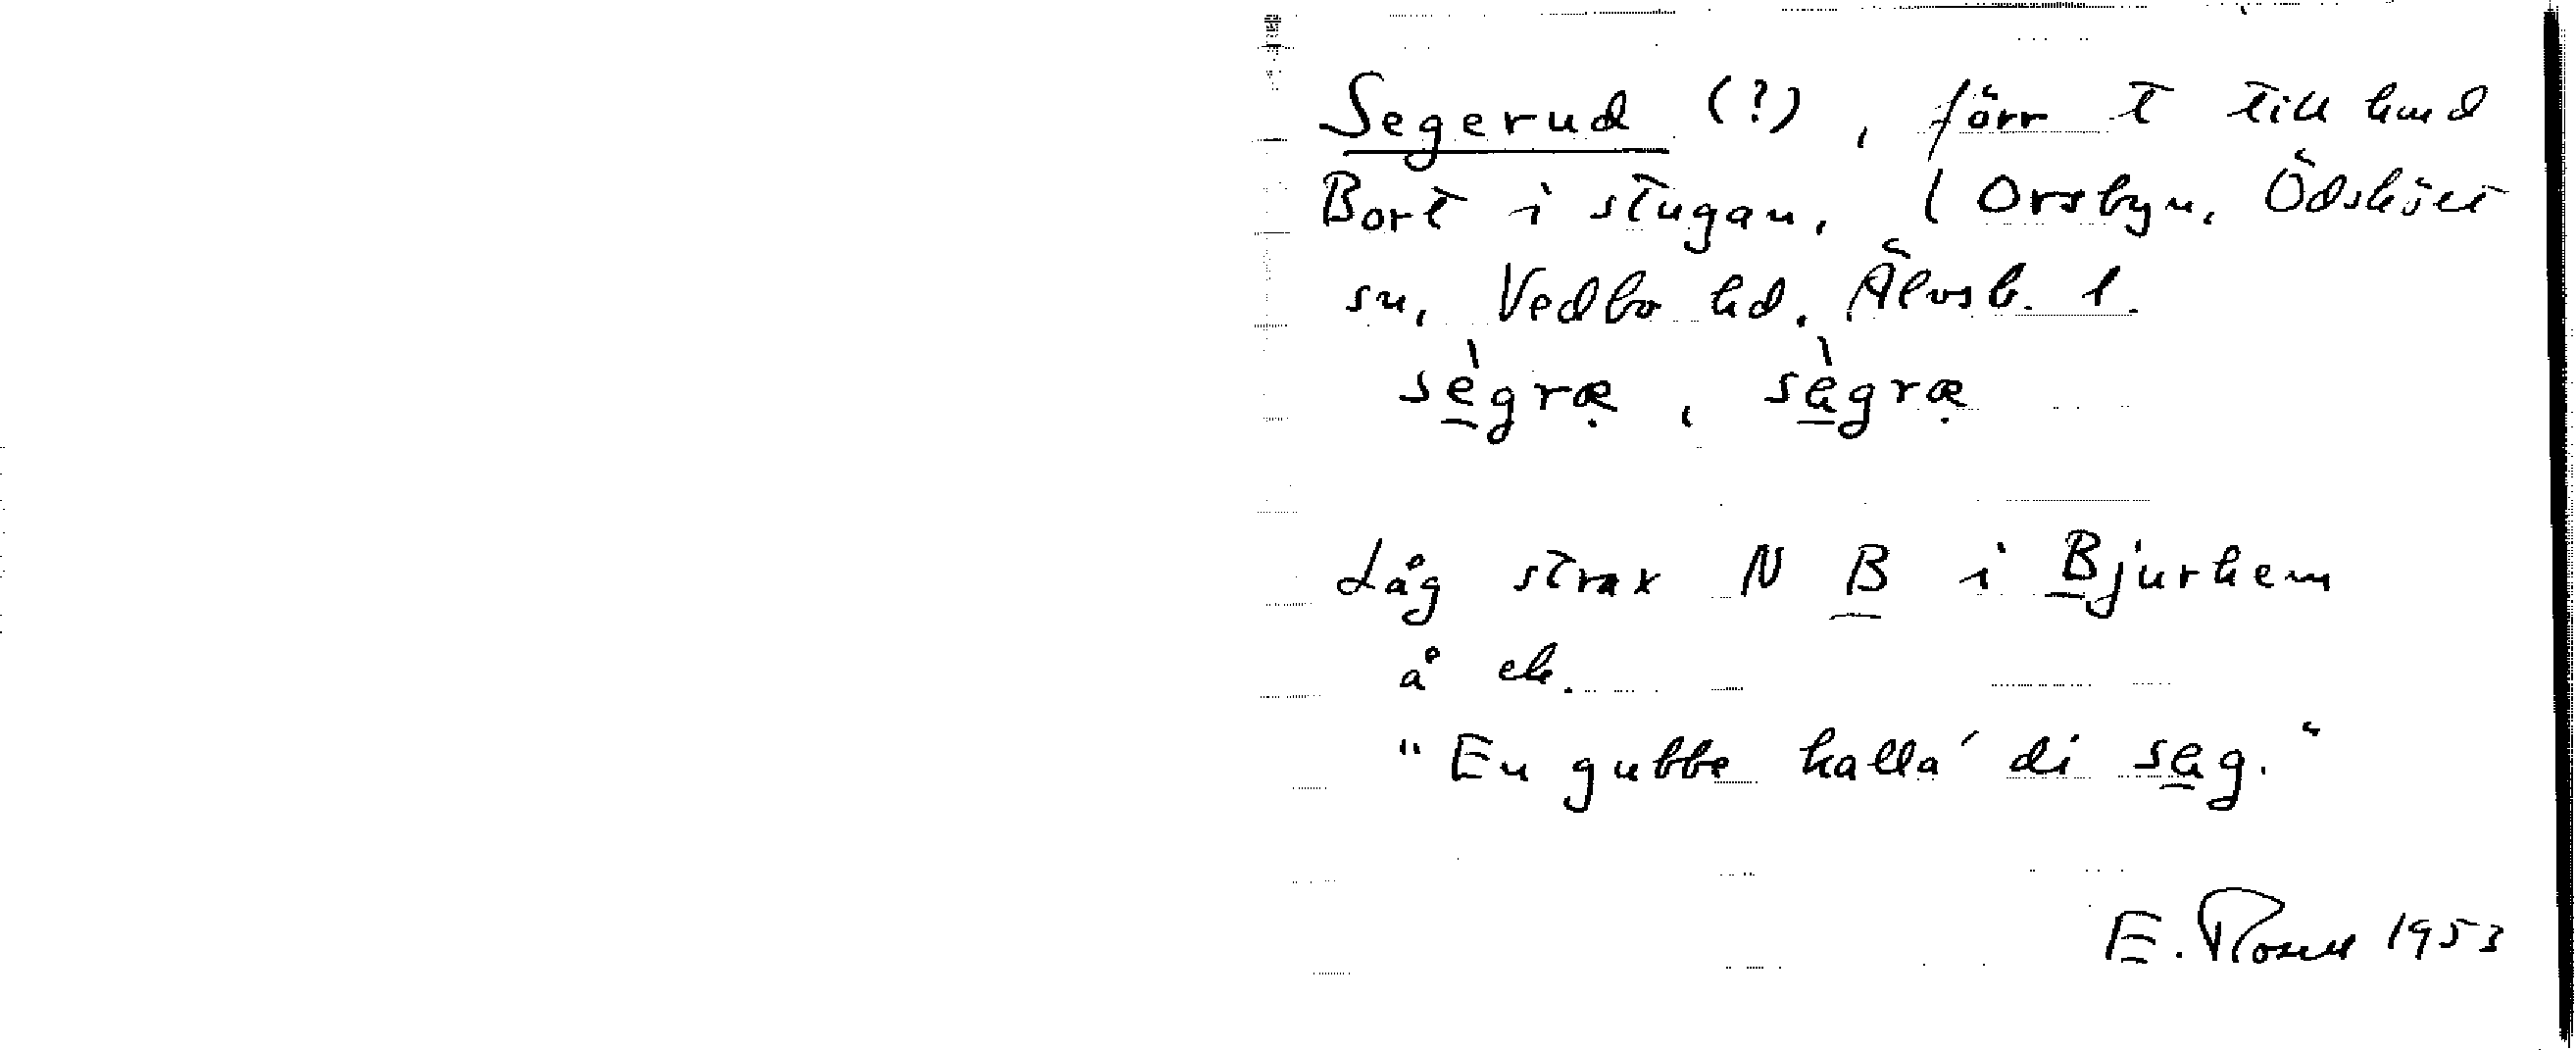 Segerud (?), förr t till hmd
Bort i stugan, (Orsbyn, Ödskölt
sn, Vedbo hd. Älvsb. l.
sègræ, sàgræ
Låg strax N B i Bjurhem
å ek.
"En gubbe kalla' di sæg."
E. Rosell 1953